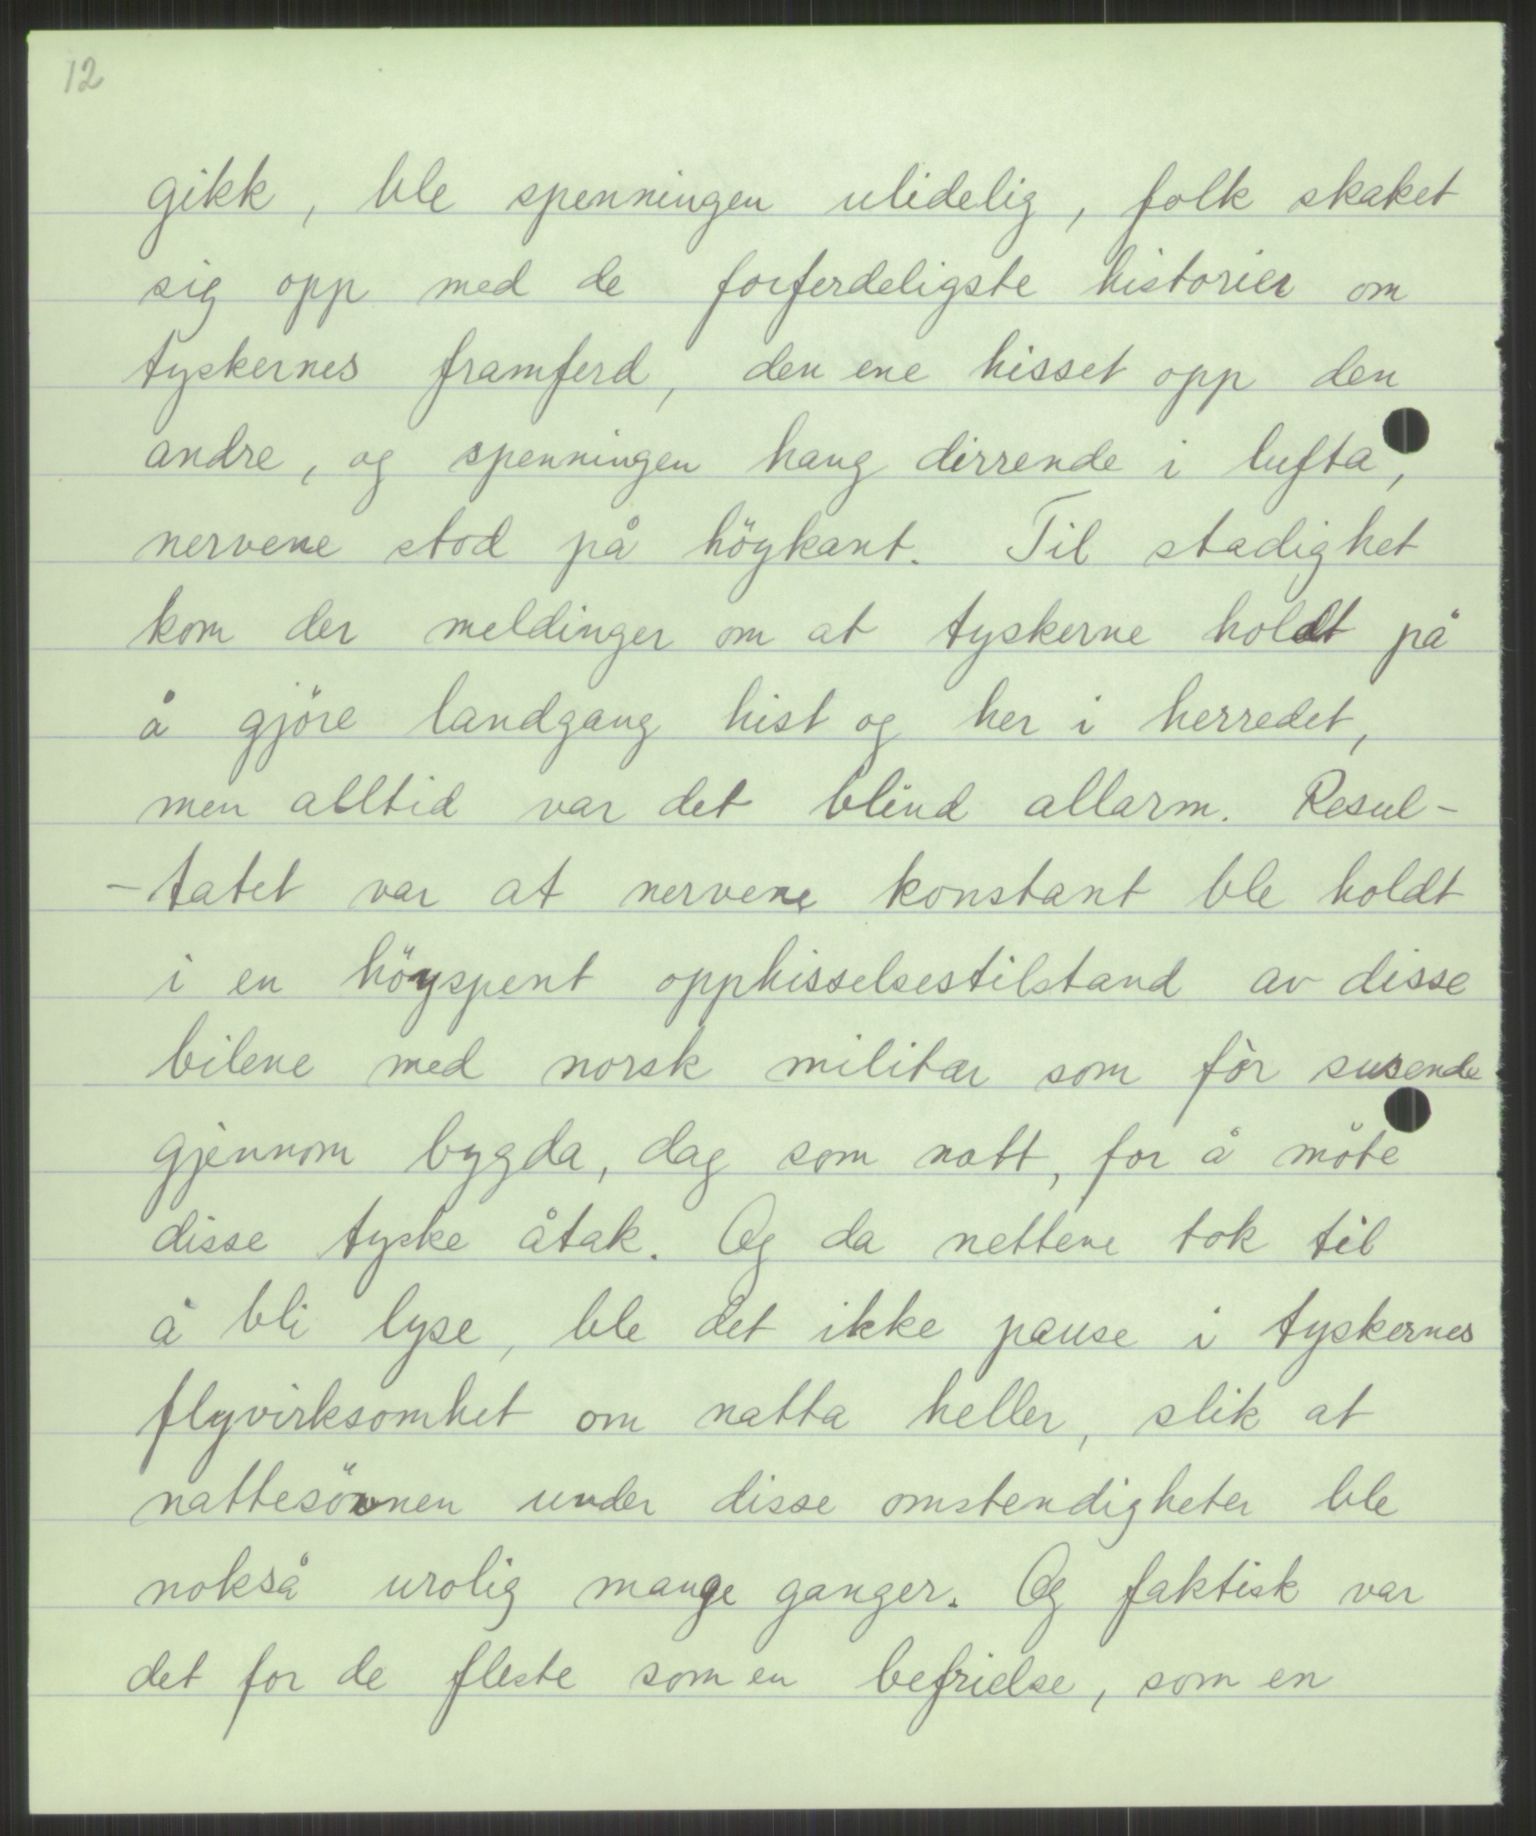 12
gikk, ble spenningen ulidelig, folk skaket
sig opp med de forferdeligste historier om
tyskernes framferd, den ene hisset opp den
andre, og spenningen hang dirrende i lufta,
nervene stod på höykant. Til stadighet
kom der meldinger om at tyskerne holdt på
å gjöre landgang hist og her i herredet,
men alltid var det blind allarm. Resul-
-tatet var at nervene konstant ble holdt
i en höyspent opphisselsestilstand av disse
bilene med norsk militær som fòr susende
gjennom bygda, dag som natt, for å möte
disse tyske åtak. Og da nettene tok til
å bli lyse, ble det ikke pause i tyskernes
flyvirksomhet om natta heller, slik at
nattesövnen under disse omstendigheter ble
nokså urolig mange ganger. Og faktisk var
det for de fleste som en befrielse, som en